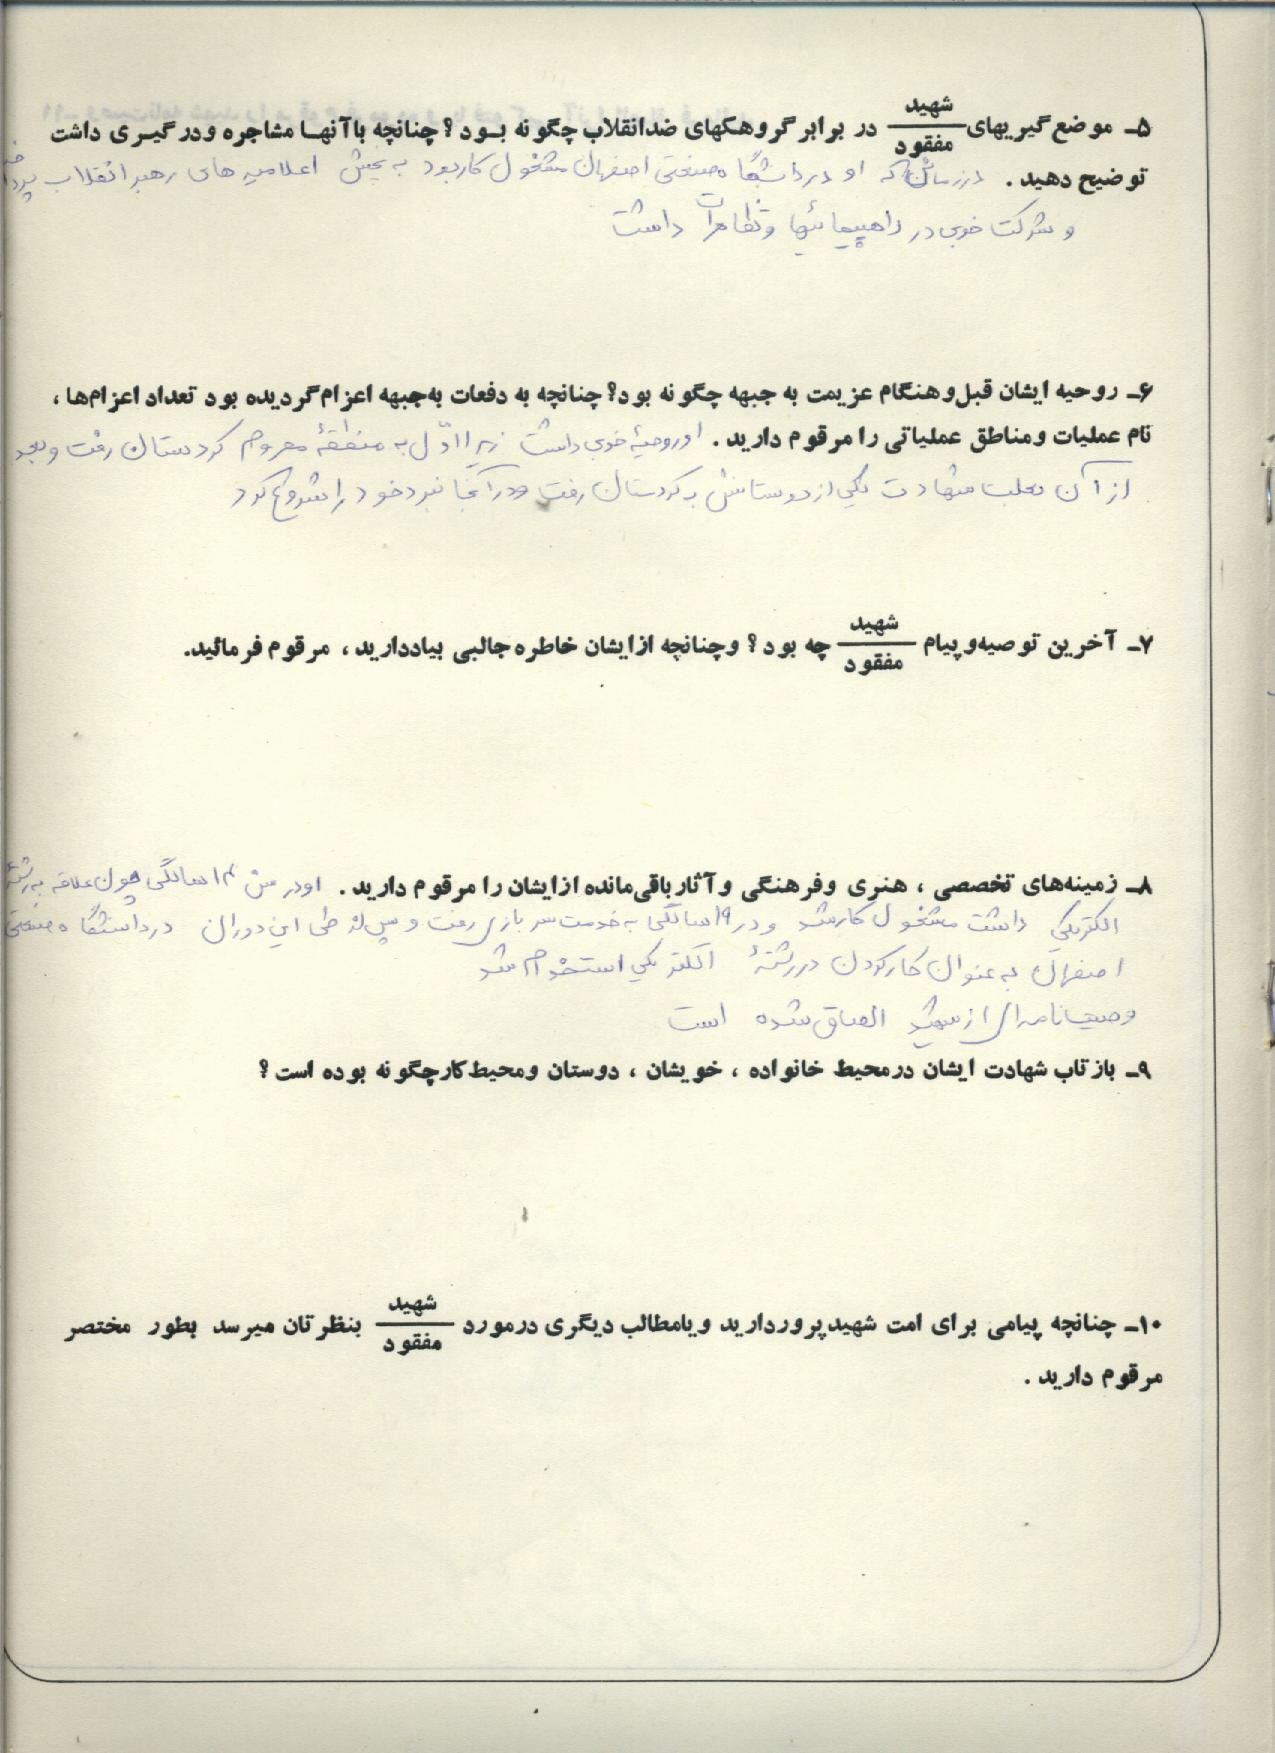 ۵ـ موضع‌گیریهای شهید/مفقود در برابر گروهکهای ضدانقلاب چگونه بـود؟ چنانچه باآنهـا مشاجره ودرگیـری داشت
توضیح دهید. در زمانی که او در دانشگاه صنعتی اصفهان مشغول کار بود به پخش اعلامیه های رهبر انقلاب
و شرکت خوبی در راهپیمائیها و تظاهرات داشت
۶ـ روحیه ایشان قبل‌وهنگام عزیمت به جبهه چگونه بود؟ چنانچه به دفعات به‌جبهه اعزام‌گردیده بود تعداد اعزام‌ها،
نام عملیات ومناطق عملیاتی را مرقوم دارید. او روحیهٔ خوبی داشت زیرا اوّل به منطقهٔ محروم کردستان رفت و بعد
از آن بعلت شهادت یکی از دوستانش به کردستان رفت و در آنجا نبرد خود را شروع کرد
۷ـ آخرین توصیه‌وپیام شهید/مفقود چه بود؟ وچنانچه ازایشان خاطره‌جالبی بیاددارید، مرقوم فرمائید.
۸ـ زمینه‌های تخصصی، هنری وفرهنگی وآثارباقی‌مانده ازایشان را مرقوم دارید. او در سن ۱۴ سالگی چون علاقه به رشتهٔ
الکتریکی داشت مشغول کار شد و در ۱۹ سالگی به خدمت سربازی رفت و پس از طی این دوران در دانشگاه صنعتی
اصفهان به عنوان کار کردن در رشتهٔ الکتریکی استخدام شد
وصیتنامه‌ای از شهید الصاق شده است
۹ـ بازتاب شهادت ایشان درمحیط خانواده، خویشان، دوستان ومحیط‌کارچگونه بوده است؟
۱۰ـ چنانچه پیامی برای امت شهیدپروردارید ویامطالب دیگری درمورد شهید/مفقود بنظرتان میرسد بطور مختصر
مرقوم دارید.